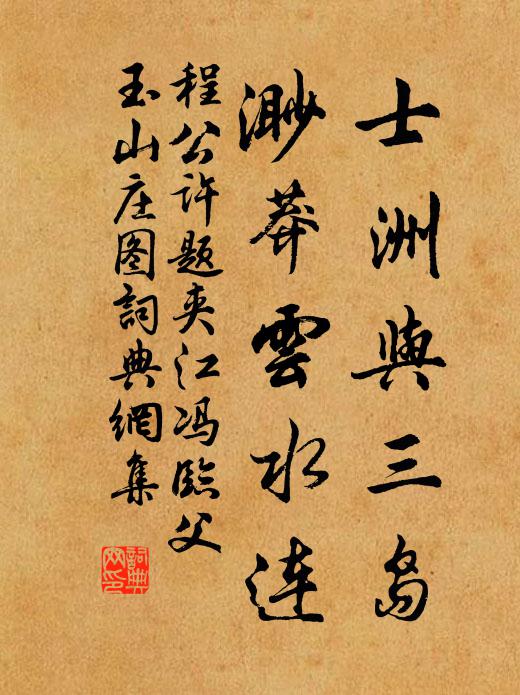 士洲與三島
渺莽雲水連
程公許題夾江冯臨父
玉山庄图詞典網集
詞典網印